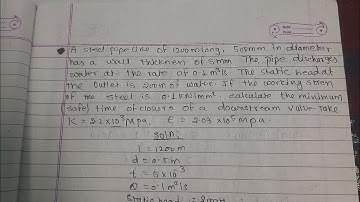 A steel pipe line of 1200m long, 500mm in diameter
has a wall thickness of 5mm. The pipe discharges
water at the rate of 0.1 m³/s. The static head at
the outlet is 200m of water. If the working stress
of the steel is 0.1 KN/mm². calculate the minimum
safe time of closure of a downstream valve. Take
K = 2.2x10³ Mpa. E = 2.03 x10⁵ Mpa.
Soln:
l = 1200m
d = 0.5m
t = 5x10⁻³
Q = 0.1m³/s
Static head =